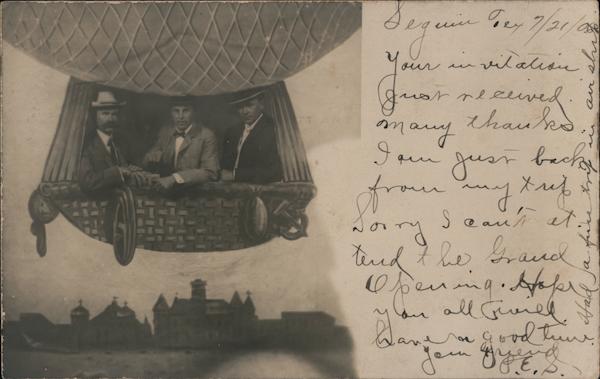 Seguin Tex 7/21/08
Your invitation
just received
many thanks
I am just back
from my trip
Sorry I can't at
tend the Grand
Opening. Hope
you all will
have a good time
your friend
P. E. S.
Had a fine trip in air ship